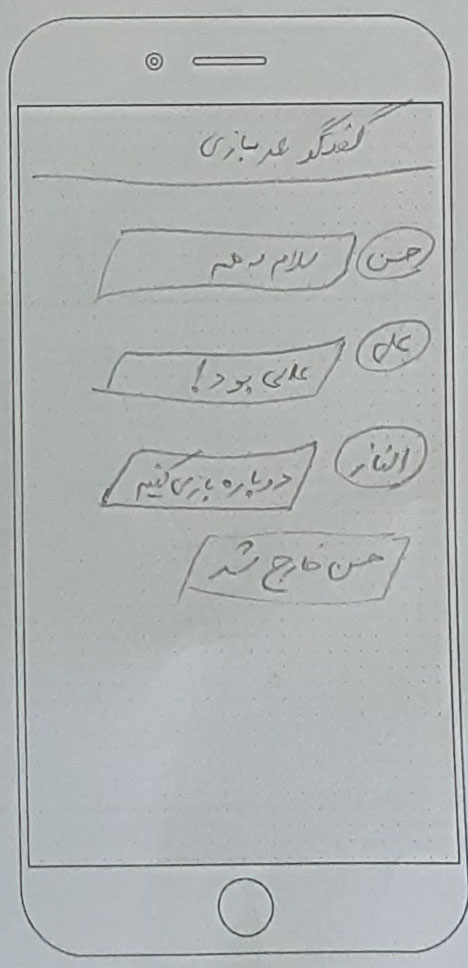 گفتگو بازی
حسن سلام به همه
علی عالی بود!
الناز دوباره بازی کنیم
حسن خارج شد